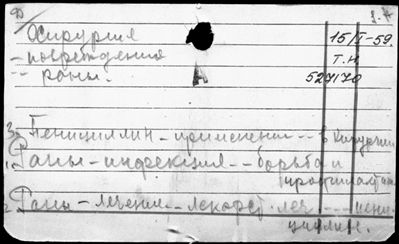 Д 1.4
Хирургия 15/I-59.
- повреждения Т.Н.
- раны. А 527170
3. Пенициллин - применение -- в хирургии
1. Раны - инфекция -- борьба и
профилактика
2. Раны - лечение -- лекарст. леч. --- пени-
циллин.